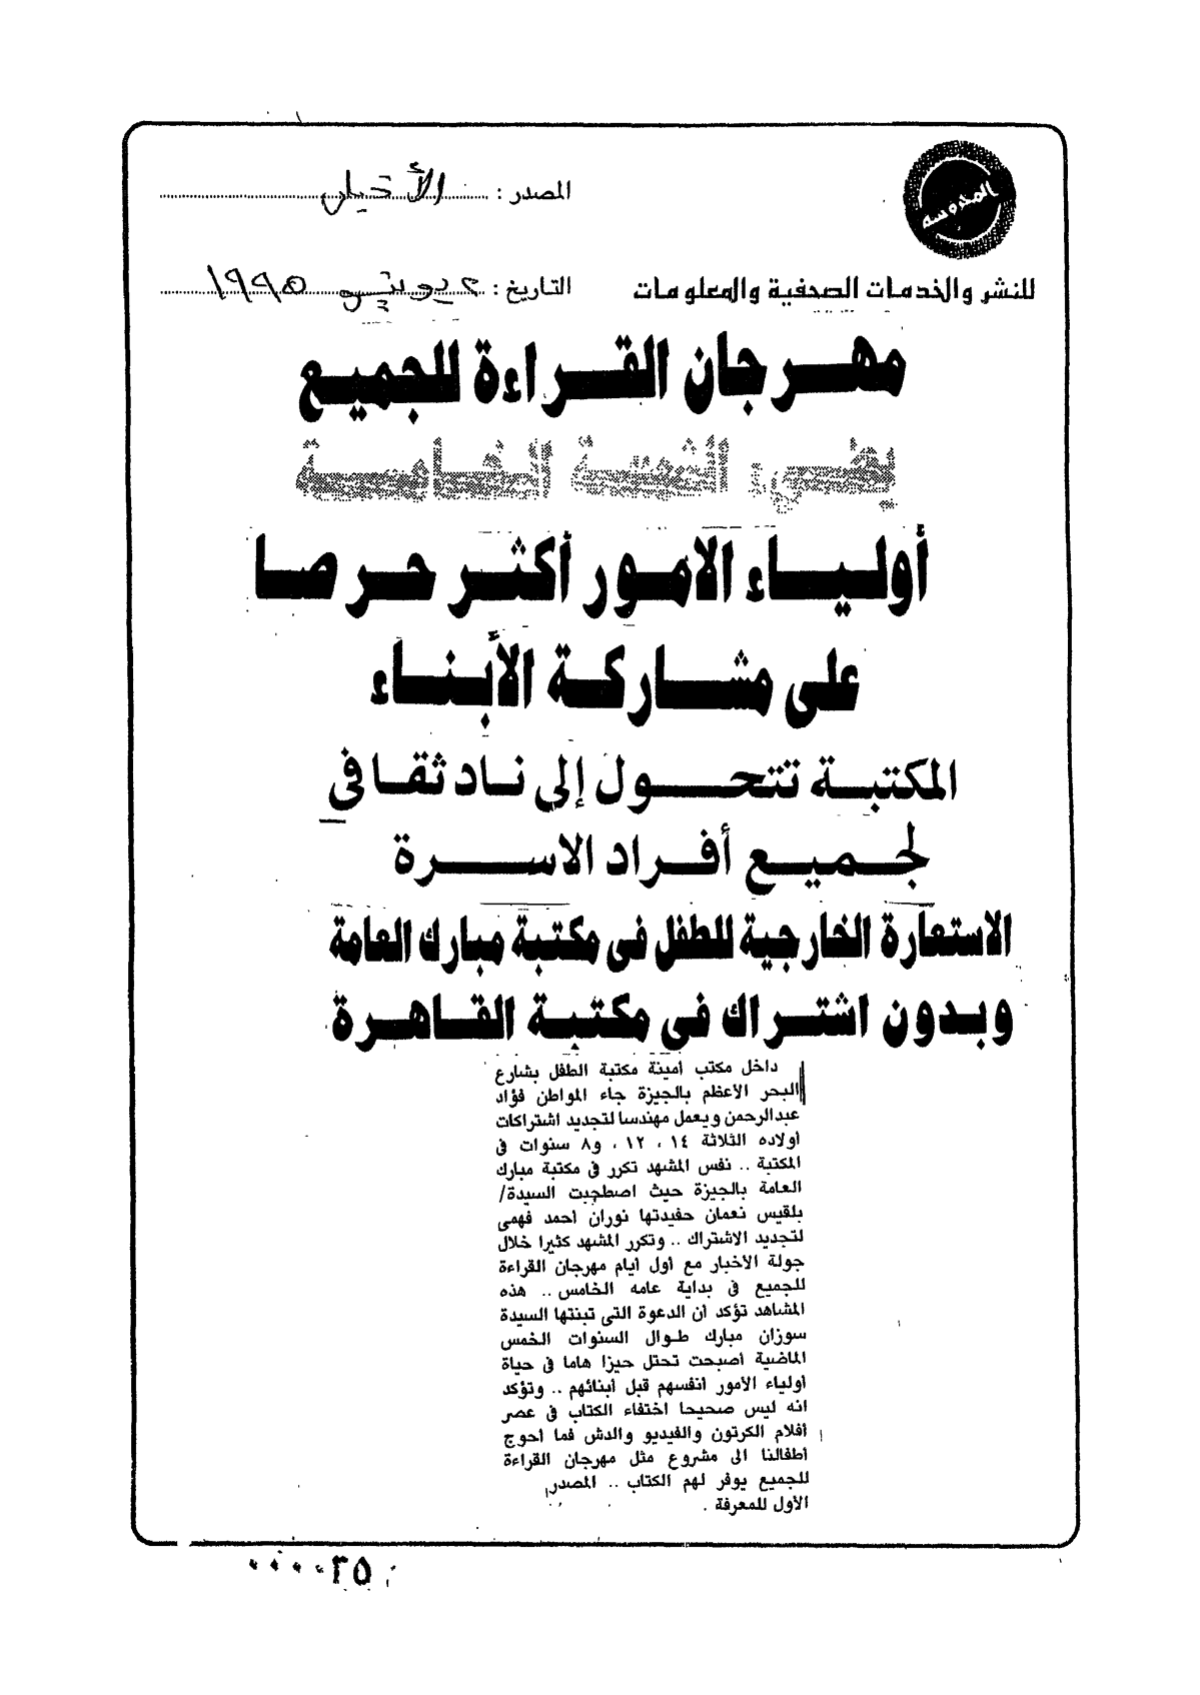 المدروسة
المصدر : الأخبار
للنشر والخدمات الصحفية والمعلومات
التاريخ : ٢ يونيو ١٩٩٥
مهرجان القراءة للجميع
يضىء الشمعة الخامسة
أولياء الامور أكثر حرصا
على مشاركة الأبناء
المكتبة تتحول إلى ناد ثقافى
لجميع أفراد الاسرة
الاستعارة الخارجية للطفل فى مكتبة مبارك العامة
وبدون اشتراك فى مكتبة القاهرة
داخل مكتب أمينة مكتبة الطفل بشارع
البحر الأعظم بالجيزة جاء المواطن فؤاد
عبدالرحمن ويعمل مهندسا لتجديد اشتراكات
أولاده الثلاثة ١٤ ، ١٢ ، و٨ سنوات فى
المكتبة .. نفس المشهد تكرر فى مكتبة مبارك
العامة بالجيزة حيث اصطحبت السيدة/
بلقيس نعمان حفيدتها نوران أحمد فهمى
لتجديد الاشتراك .. وتكرر المشهد كثيرا خلال
جولة الأخبار مع أول أيام مهرجان القراءة
للجميع فى بداية عامه الخامس .. هذه
المشاهد تؤكد أن الدعوة التى تبنتها السيدة
سوزان مبارك طوال السنوات الخمس
الماضية أصبحت تحتل حيزا هاما فى حياة
أولياء الأمور أنفسهم قبل أبنائهم .. وتؤكد
انه ليس صحيحا اختفاء الكتاب فى عصر
أفلام الكرتون والفيديو والدش فما أحوج
أطفالنا الى مشروع مثل مهرجان القراءة
للجميع يوفر لهم الكتاب .. المصدر
الأول للمعرفة .
٠٠٠٠٢٥